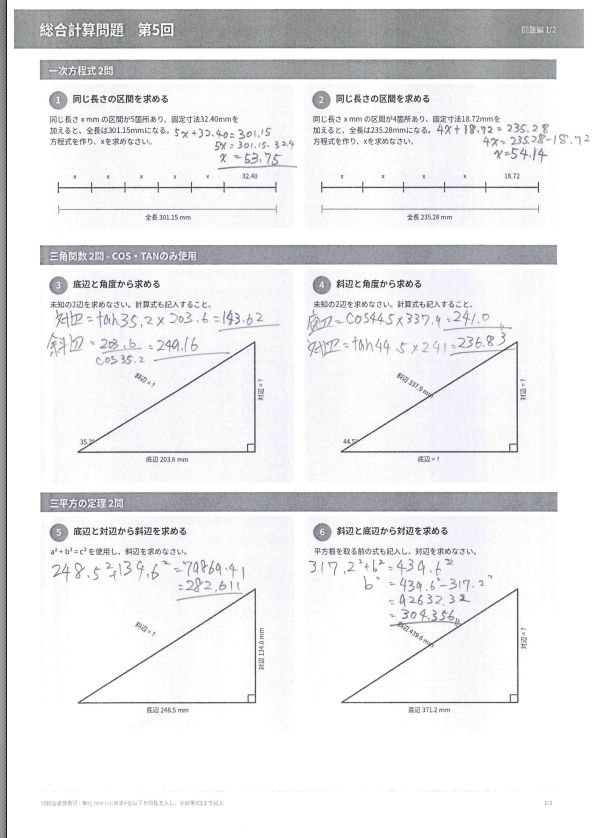 総合計算問題 第5回
問題編 1/2
一次方程式 2問
1 同じ長さの区間を求める
同じ長さ x mm の区間が5箇所あり、固定寸法32.40mmを
加えると、全長は301.15mmになる。
方程式を作り、xを求めなさい。
5x+32.40=301.15
5x=301.15-32.4
x=53.75
x x x x x 32.40
全長 301.15 mm
2 同じ長さの区間を求める
同じ長さ x mm の区間が4箇所あり、固定寸法18.72mmを
加えると、全長は235.28mmになる。
方程式を作り、xを求めなさい。
4x+18.72=235.28
4x=235.28-18.72
x=54.14
x x x x 18.72
全長 235.28 mm
三角関数 2問 - COS・TANのみ使用
3 底辺と角度から求める
未知の2辺を求めなさい。計算式も記入すること。
対辺=tan35.2×203.6=143.62
斜辺=203.6/cos35.2=249.16
斜辺 = ?
対辺 = ?
35.2°
底辺 203.6 mm
4 斜辺と角度から求める
未知の2辺を求めなさい。計算式も記入すること。
底辺=cos44.5×337.9=241.0
対辺=tan44.5×241=236.83
斜辺 337.9 mm
対辺 = ?
44.5°
底辺 = ?
三平方の定理 2問
5 底辺と対辺から斜辺を求める
a² + b² = c² を使用し、斜辺を求めなさい。
248.5²+134.6²=79869.41
=282.611
斜辺 = ?
対辺 134.6 mm
底辺 248.5 mm
6 斜辺と底辺から対辺を求める
平方根を取る前の式も記入し、対辺を求めなさい。
317.2²+b²=439.6²
b²=439.6²-317.2²
=92632.32
=304.356
斜辺 439.6 mm
対辺 = ?
底辺 371.2 mm
1/2